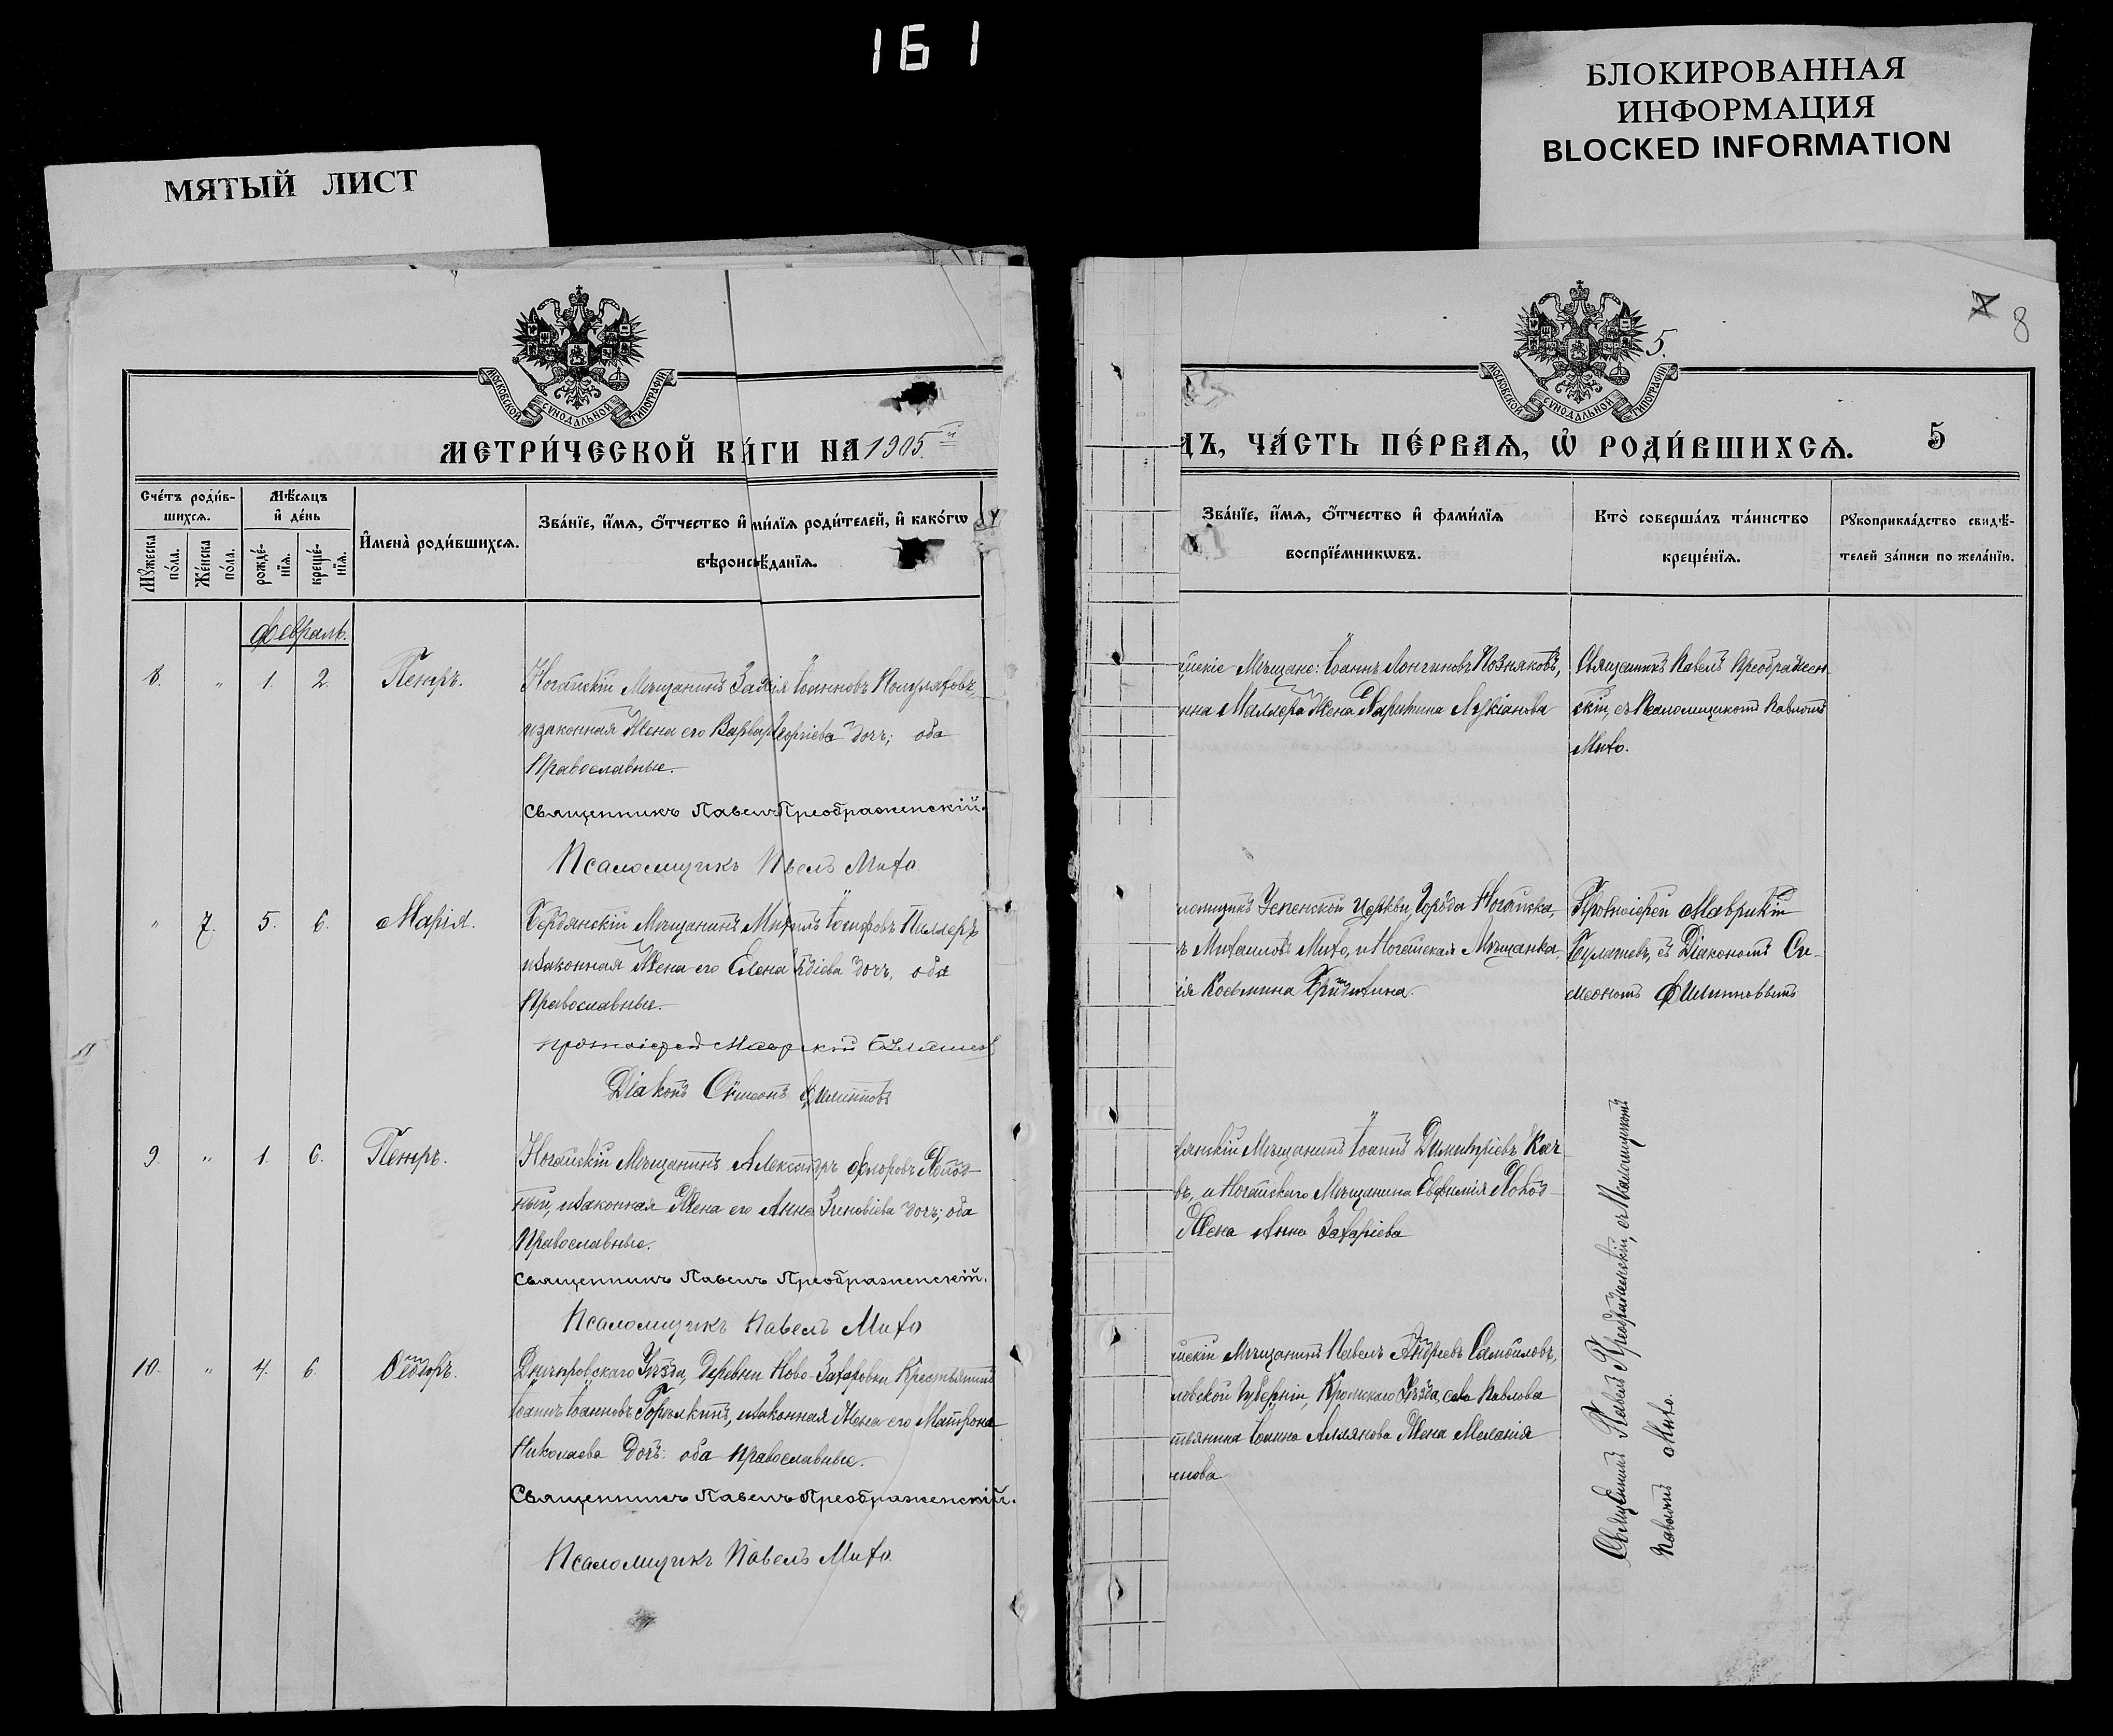 161
БЛОКИРОВАННАЯ
ИНФОРМАЦИЯ
BLOCKED INFORMATION
МЯТЫЙ ЛИСТ
МОСКОВСКОЙ СѴНОДАЛЬНОЙ ТИПОГРАФІИ
МЕТРИ́ЧЕСКОЙ КИ́ГИ НА 1905.й
Сче́тъ роди́в-
шихся.
Мѣ́сяцъ
и҆ де́нь
Мꙋ́жеска
по́ла.
Же́нска
по́ла.
рожде́-
нїя.
креще́-
нїя.
И҆мена̀ роди́вшихся.
Зва́нїе, и҆́мя, ѻ҆́тчество и҆ ми́лїя роди́телей, и҆ како́гѡ
вѣроисп ѣ́данїя.
Февраль.
8. " 1. 2. Петръ.
Ногайскій Мѣщанинъ Іоанновъ
и законная Жена его Варвар Георгіева дочь; оба
Православные.
Священникъ Павелъ Преображенскій.
Псаломщикъ Павелъ Михо
" 7. 5. 6. Марія.
Бердянскій Мѣщанинъ Михаилъ Іосифовъ
и законная Жена его Елена дочь, оба
Православные.
протоіерей Маврикій
Діаконъ Сѵмеонъ Филипповъ
9. " 1. 6. Петръ.
Ногайскій Мѣщанинъ Александръ Флоровъ
ный, и законная Жена его Анна Зиновіева дочь; оба
Православные.
Священникъ Павелъ Преображенскій.
Псаломщикъ Павелъ Михо
10. " 4. 6. Ѳеодоръ.
Днѣпровскаго Уѣзда, деревни Ново-Захаровки Крестьянинъ
Іоаннъ Іоанновъ и законная Жена его Матрона
Николаева дочь: оба православные.
Священникъ Павелъ Преображенскій.
Псаломщикъ Павелъ Михо.
8
5.
МОСКОВСКОЙ СѴНОДАЛЬНОЙ ТИПОГРАФІИ
ДЪ, ЧА́СТЬ ПЕ́РВАЯ, Ѡ҆ РОДИ́ВШИХСЯ. 5
Зва́нїе, и҆́мя, ѻ҆́тчество и҆ фами́лїя
воспрїе́мникѡвъ.
Кто̀ соверша́лъ та́инство
креще́нїя.
Рꙋкоприкла́дство свидѣ́-
телей за́писи по жела́нїю.
йскіе Мѣщане: Іоаннъ Лонгиновъ Позняковъ,
нна Жена Харитина Лукіанова
Священникъ Павелъ Преображен-
скій, съ Псаломщикомъ Павломъ
Михо.
ломщикъ Успенской Церкви, Города Ногайска,
ъ Михаиловъ Михо, и Ногайская Мѣщанка,
ія Косьмина
Протоіерей Маврикій
съ Діакономъ Си-
меономъ Филипповымъ
дянскій Мѣщанинъ Іоаннъ Димитріевъ
въ, и Ногайскаго Мѣщанина Евфимія
Жена Анна Захаріева
йскій Мѣщанинъ Павелъ Андреевъ Самойловъ,
ловской Губерніи, Кромскаго Уѣзда, села Павлова
тьянина Іоанна Жена Меланія
Священникъ Павелъ Преображенскій, съ Псаломщикомъ
Павломъ Михо.